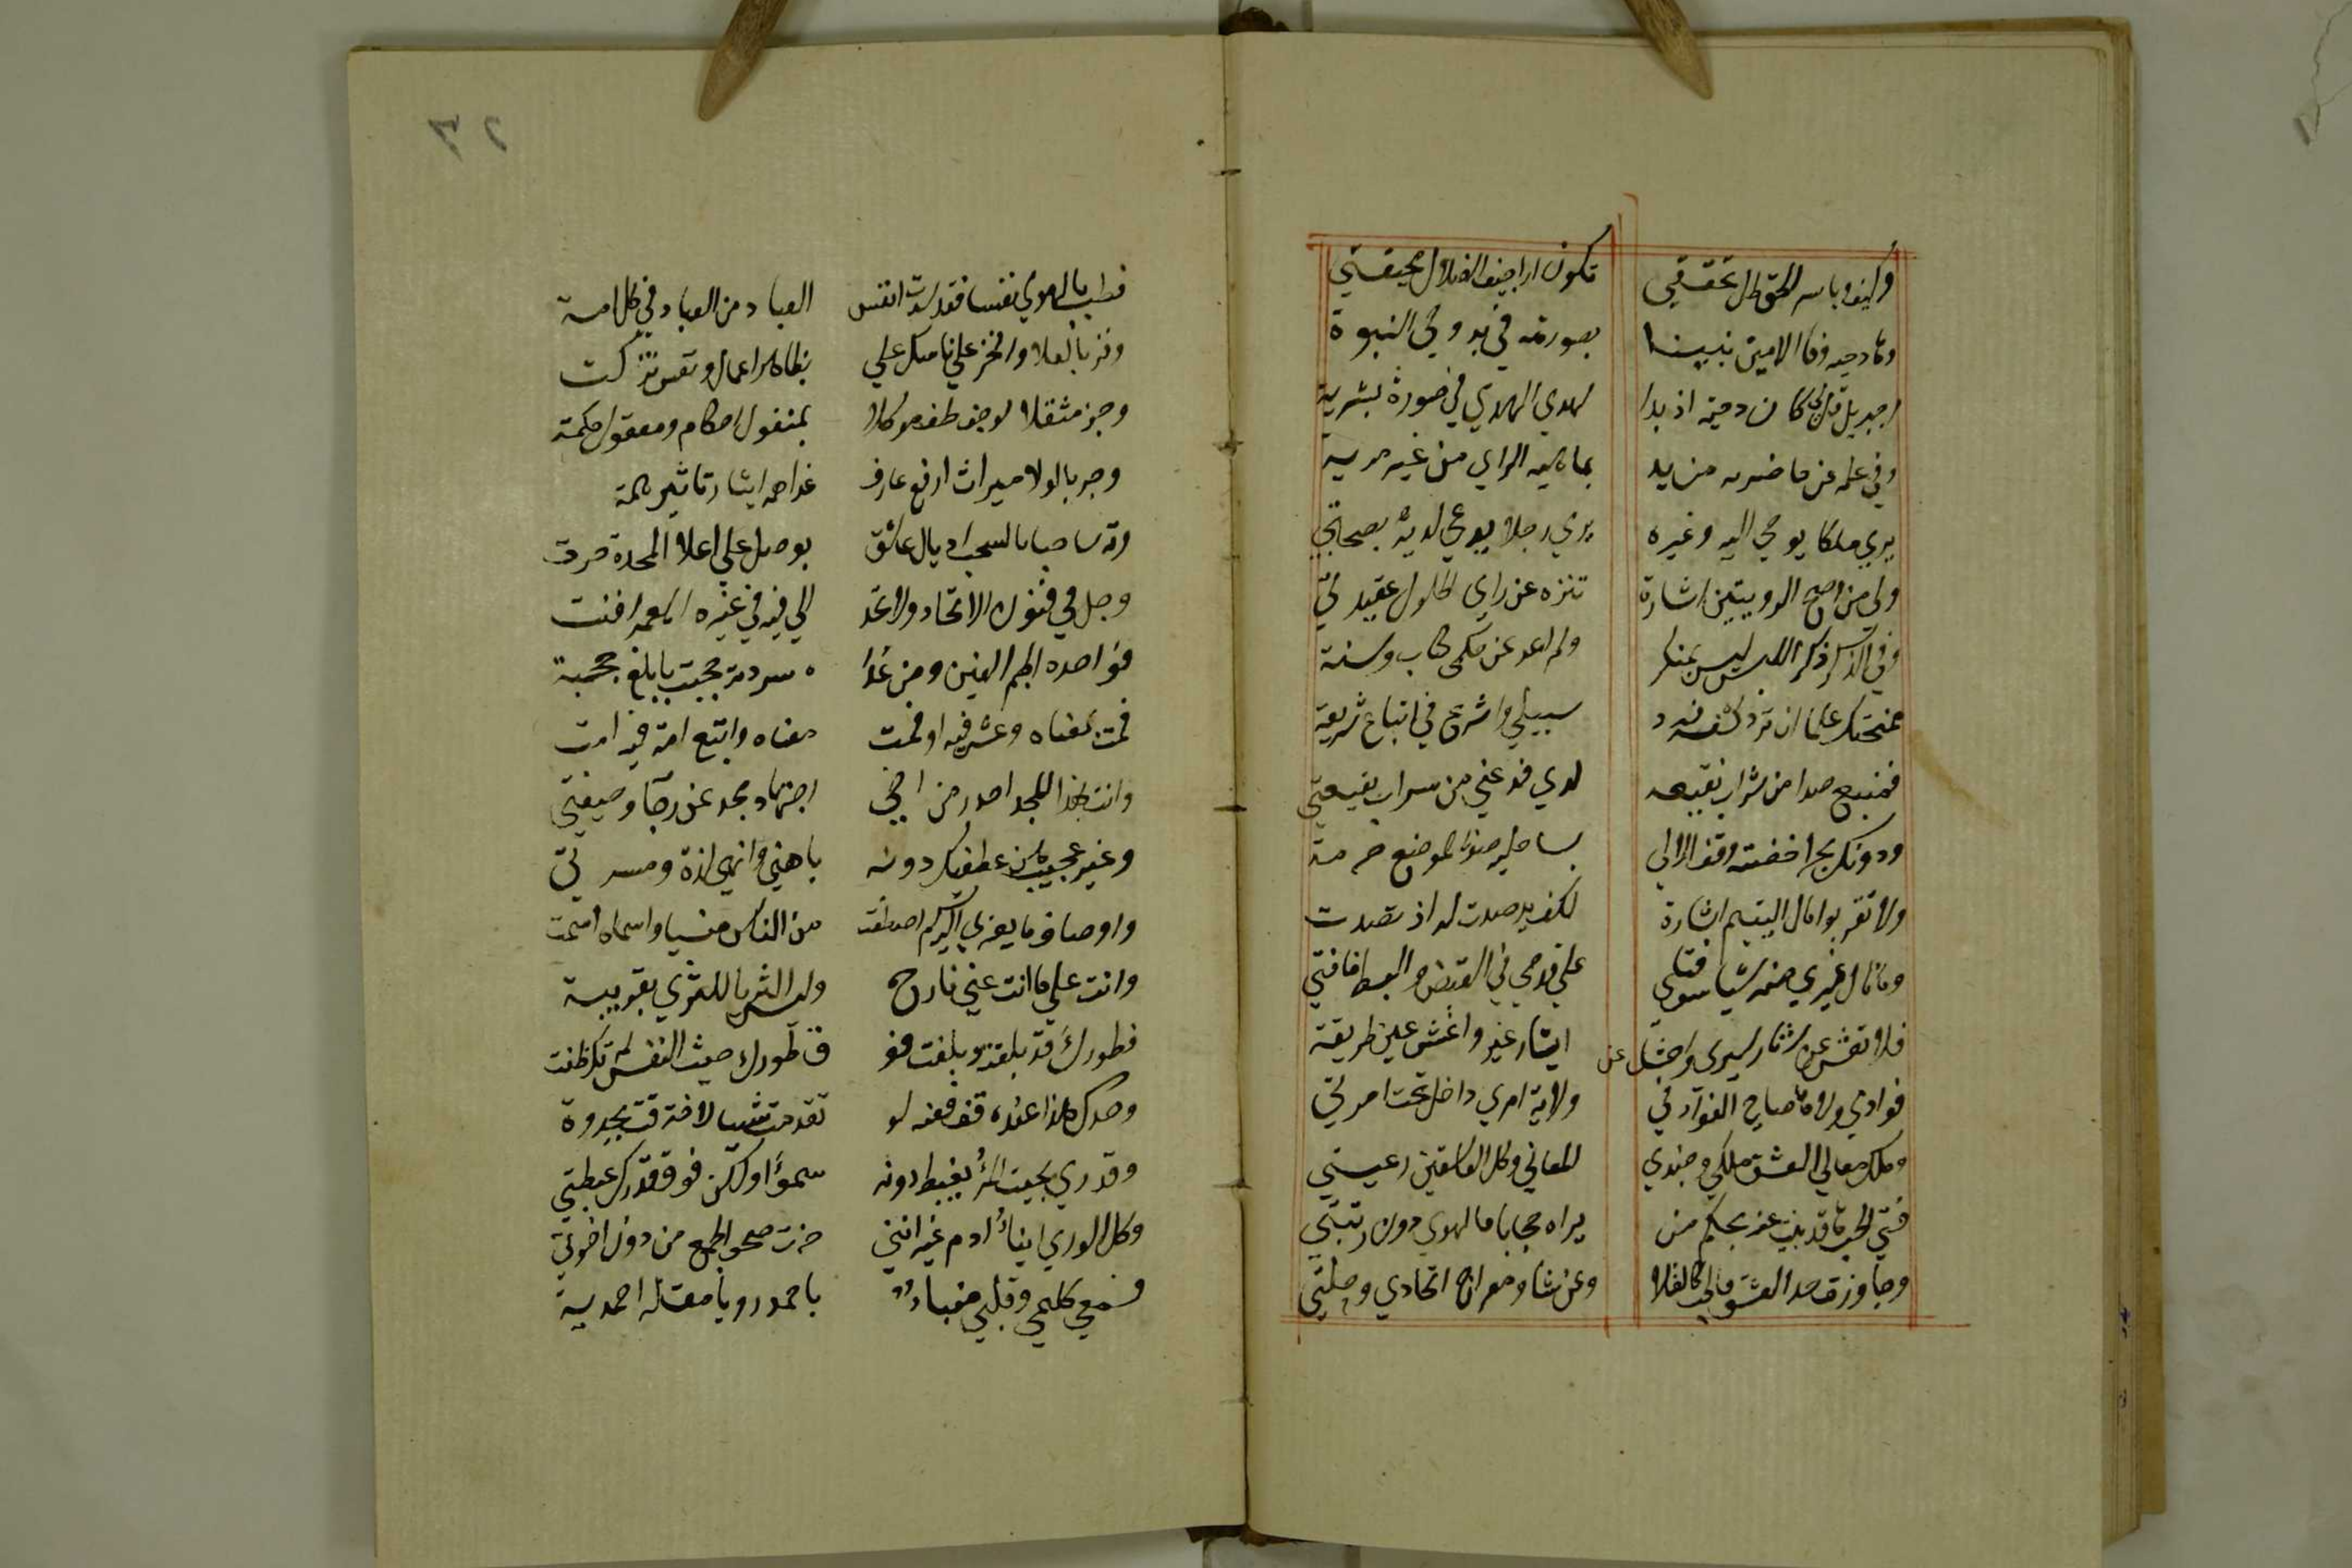 وكيف وباسم الحق ظل تحققي تكون اراجيف الضلال مخيفتي
وها دحيه وفا الامين نبينا بصورته في بدو وحي النبوة
اجبريل قل لي كان دحية اذ بدا لهدي الهدي في صورة بشرية
وفي علمه عن حاضريه مزيد بماهيه المراي من غير مرية
يري ملكا يوحي اليه وغيره يري رجلا يدعي لديه بصحبة
ولي من اصح الرويتين اشارة تنزه عن راي الحلول عقيدتي
وفي الذكر ذكر اللبس ليس بمنكر ولم اعد عن حكمي كتاب وسنة
منحتك علما ان ترد كشفه فرد سبيلي واشرع في اتباع شريعتي
فمنبع صدا من شراب نقيعه لدي فدعني من سراب بقيعتي
ودونك بحرا خضته وقف الالي بساحله صونا لموضع حرمتي
ولا تقربوا مال اليتيم اشارة لكف يد صدت له اذ تصدت
وما نال غيري منه شيا سوي فتي علي قدمي في القبض والبسط ما فتي
فلا تعش عن اثار سيري واخش عن ايثار غير واغش عين طريقتي
فوادي ولاها صاح صاح الفواد في ولاية امري داخل تحت امرتي
وملك معالي العشق ملكي وجندي المعاني وكل العاشقين رعيتي
فتي الحب ها قد بنت عنه بحكم من يراه حجابا فالهوي دون رتبتي
وجاوزت حد العشق فالحب كالقلا وعن شاو معراج اتحادي رحلتي
فطب بالهوي نفسا فقد سدت انفس العباد من العباد في كل امة
وفز بالعلا وافخر علي ناسك علي بظاهر اعمال ونفس تزكت
وجز مثقلا لو خف طف موكلا بمنقول احكام ومعقول حكمة
وحز بالولا ميراث ارفع عارف غدا همه ايثار تاثير همة
وته ساحبا بالسحب اذيال عاشق بوصل علي اعلا المجرة جرت
وجل في فنون الاتحاد ولا تحد الي فيه في غيره العمر افنت
فواحده الجم الغفير ومن غدا ه شرذمة حجت بابلغ حجة
فمت بمعناه وعش فيه او فمت معناه واتبع امة فيه امت
وانت بهذا المجد اجدر من اخي اجتهاد مجد عن رجا وخيفة
وغير عجيب هز عطفيك دونه باهني وانهي لذة ومسرة
واوصاف ما يعزي اليه كم اصطفت من الناس منسيا واسماه اسمت
وانت علي ما انت عني نازح وليس الثريا للثري بقريبة
فطورك قد بلغته وبلغت فو ق طورك حيث النفس لم تك ظنت
وحدك هذا عنده قف فعنه لو تقدمت شيا لاحترقت بجذوة
وقدري بحيث المرء يغبط دونه سموا ولكن فوق قدرك غبطتي
وكل الوري ابناء ادم غير انني حزت صحو الجمع من دون اخوتي
فسمعي كليمي وقلبي منباء باحمد رويا مقلة احمدية